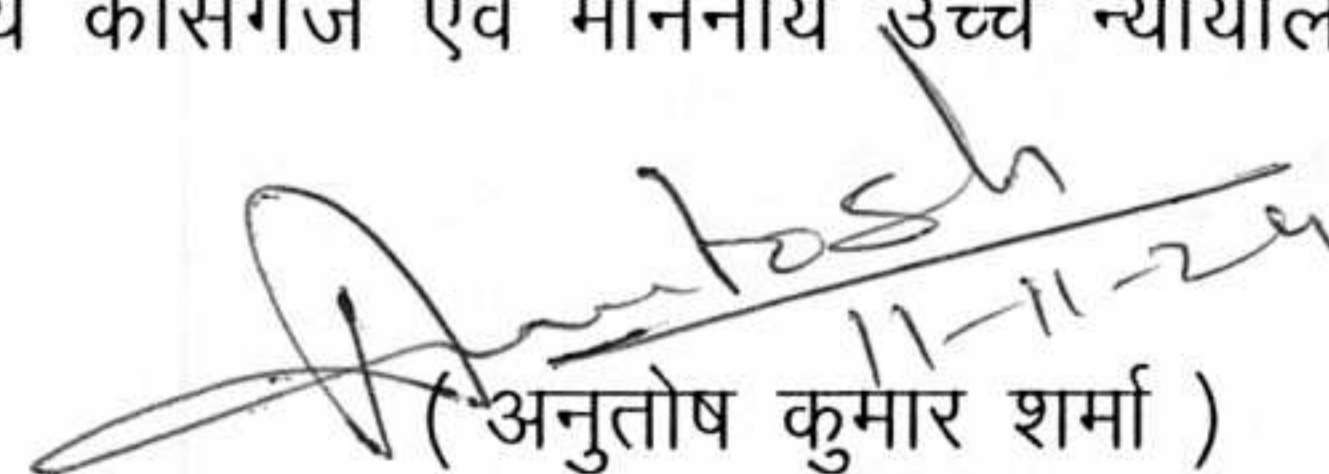 कासगंज एवं माननीय उच्च
Anutosh
11-11-24
( अनुतोष कुमार शर्मा )